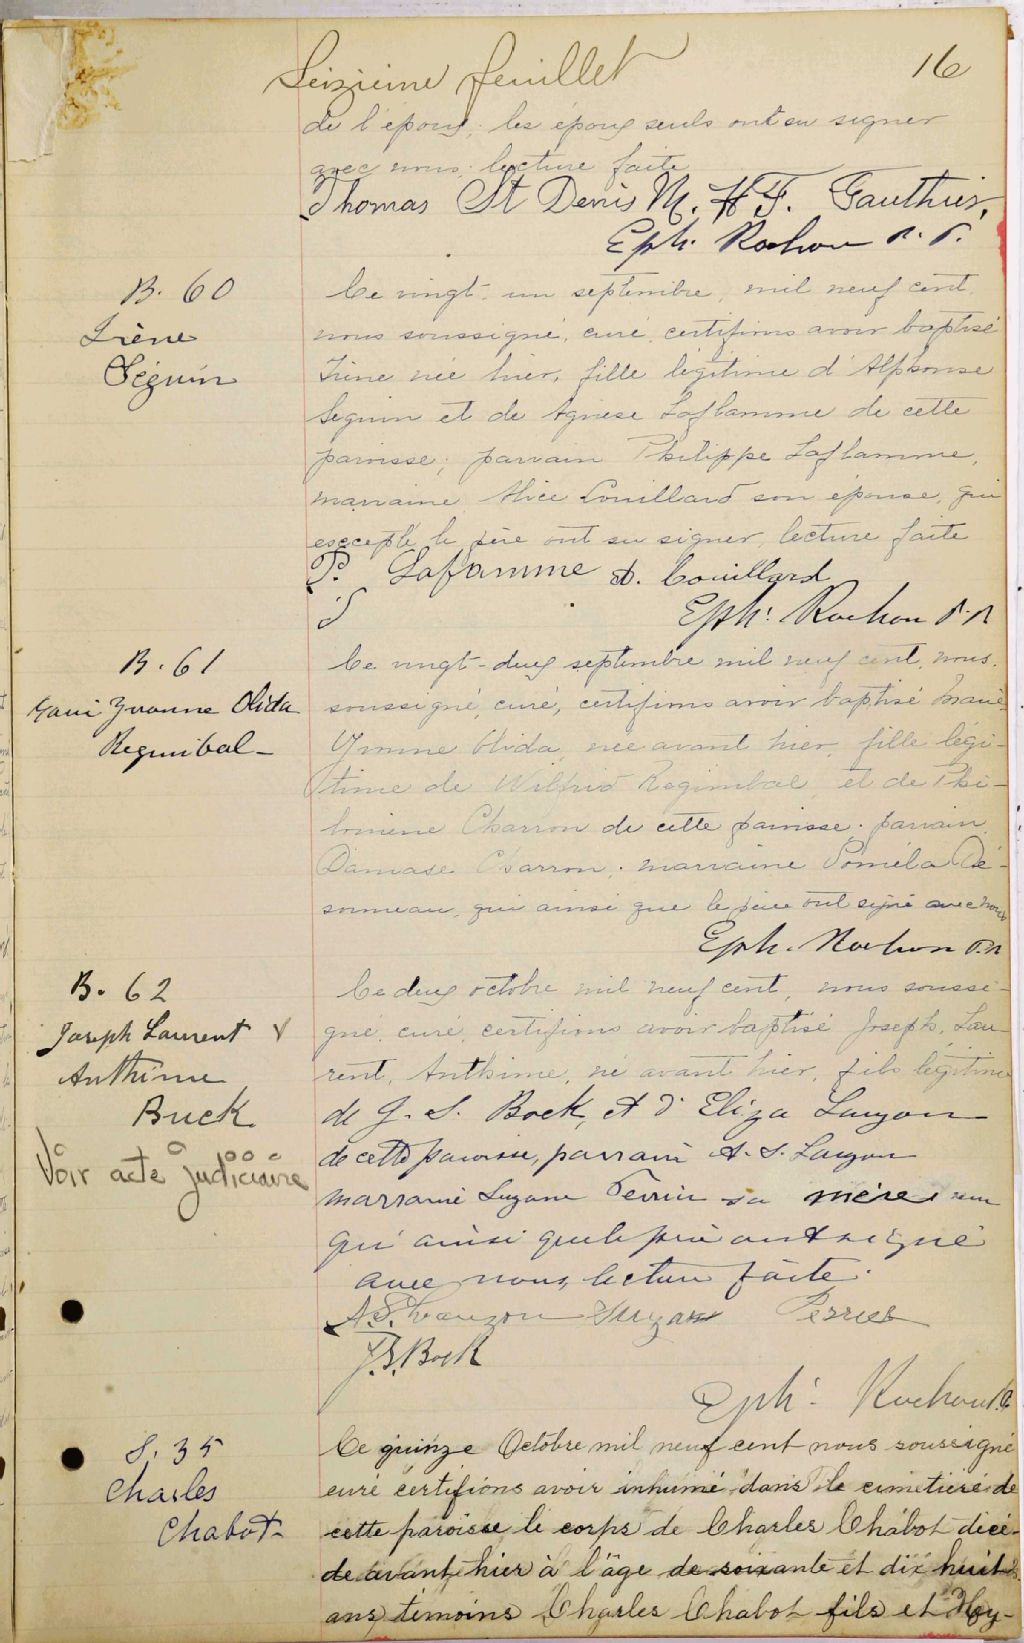 Seizième feuillet 16
de l'époux; les époux seuls ont su signer
avec nous, lecture faite
Thomas St Denis M. H F. Gauthier,
Eph. Rochon
B. 60
Irène
Séguin
Ce vingt-un septembre, mil neuf cent,
nous soussigné, curé, certifions avoir baptisé
Irène née hier, fille légitime d'Alphonse
Seguin et de Agnese Laflamme de cette
paroisse; parrain Philippe Laflamme,
marraine Alice Couillard son épouse, qui
excepté le père ont su signer, lecture faite
P. Lafamme A. Couillard
Eph. Rochon
B. 61
Yvonne Olida
Regimbal
Ce vingt-deux septembre mil neuf cent, nous
soussigné, curé, certifions avoir baptisé Marie
Yvonne Olida, née avant hier, fille légi-
time de Wilfrid Regimbal et de Phi-
lomène Charron de cette paroisse; parrain
Damase Charron; marraine Poméla Dé-
sormeau, qui ainsi que le père ont signé avec nous
Eph. Rochon
B. 62
Joseph Laurent
Anthime
Buck
Voir acte judiciaire
Ce deux octobre mil neuf cent, nous soussi-
gné, curé, certifions avoir baptisé Joseph, Lau-
rent, Anthime, né avant hier, fils légitime
de J. S. Bock, et d'Eliza Lauzon
de cette paroisse, parrain A. S. Lauzon
marraine Suzane Perrier sa mère
qui ainsi que le père ont signé
avec nous, lecture faite.
A. S. Lauzon Suzan Perrier
J. S. Bock
Eph. Rochon
S. 35
Charles
Chabot
Ce quinze Octobre mil neuf cent nous soussigné
curé certifions avoir inhumé dans le cimetière de
cette paroisse le corps de Charles Chabot décé-
dé avant hier à l'âge de soixante et dix huit
ans, témoins Charles Chabot fils et Hoy-